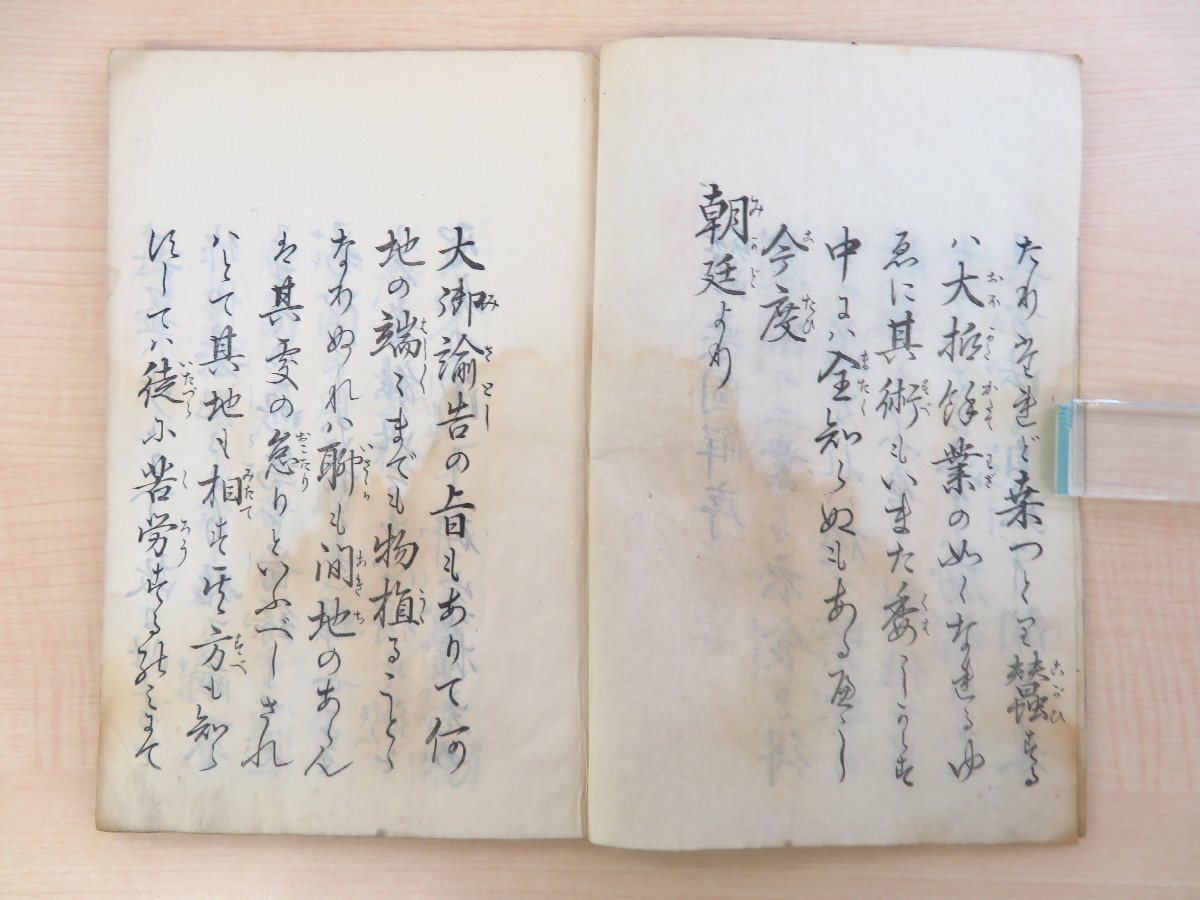 たれりされど桑つくり蠶する
ハ大抵餘業の如くなれるゆ
ゑに其術もいまた委しからす
中にハ全知らぬもあるべし
今度
朝廷より
大御諭告の旨もありて何
地の端々までも物植ることゝ
なりぬれハ聊も間地のあらん
は其処の怠りといふべしされ
ハとて其地も相す方も知ら
すしてハ徒に苦労するのみにて